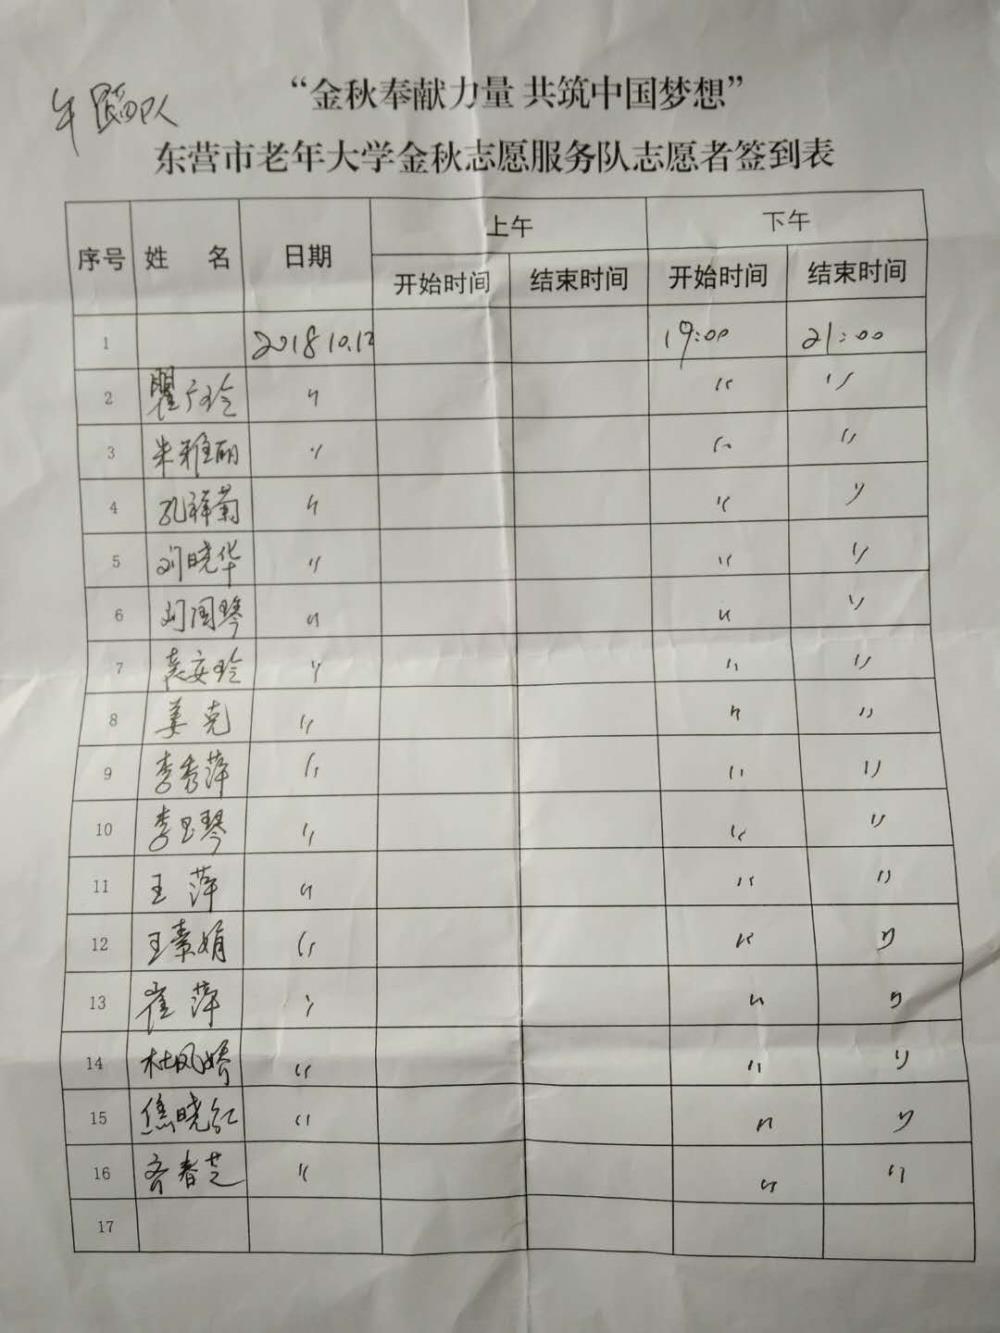 “金秋奉献力量 共筑中国梦想”
东营市老年大学金秋志愿服务队志愿者签到表
序号 姓 名 日期 上午 下午
开始时间 结束时间 开始时间 结束时间
1 2018 10.12 19:00 21:00
2 瞿广玲 〃 〃 〃
3 朱雅丽 〃 〃 〃
4 孔祥菊 〃 〃 〃
5 刘晓华 〃 〃 〃
6 刘国琴 〃 〃 〃
7 袁安玲 〃 〃 〃
8 姜克 〃 〃 〃
9 李秀萍 〃 〃 〃
10 李玉琴 〃 〃 〃
11 王萍 〃 〃 〃
12 王素娟 〃 〃 〃
13 崔萍 〃 〃 〃
14 杜凤娇 〃 〃 〃
15 焦晓红 〃 〃 〃
16 齐春芝 〃 〃 〃
17